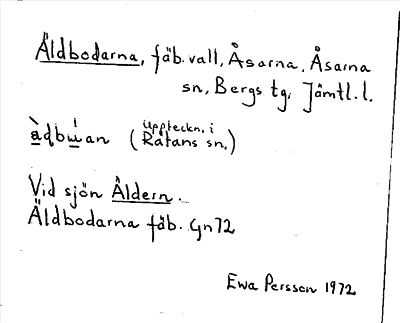 Äldbodarna, fäb.vall, Åsarna, Åsarna
sn, Bergs tg. Jämtl.l.
àdbɯ́an (Uppteckn. i
Rätans sn.)
Vid sjön Äldern.
Äldbodarna fäb. Gn72
Ewa Persson 1972